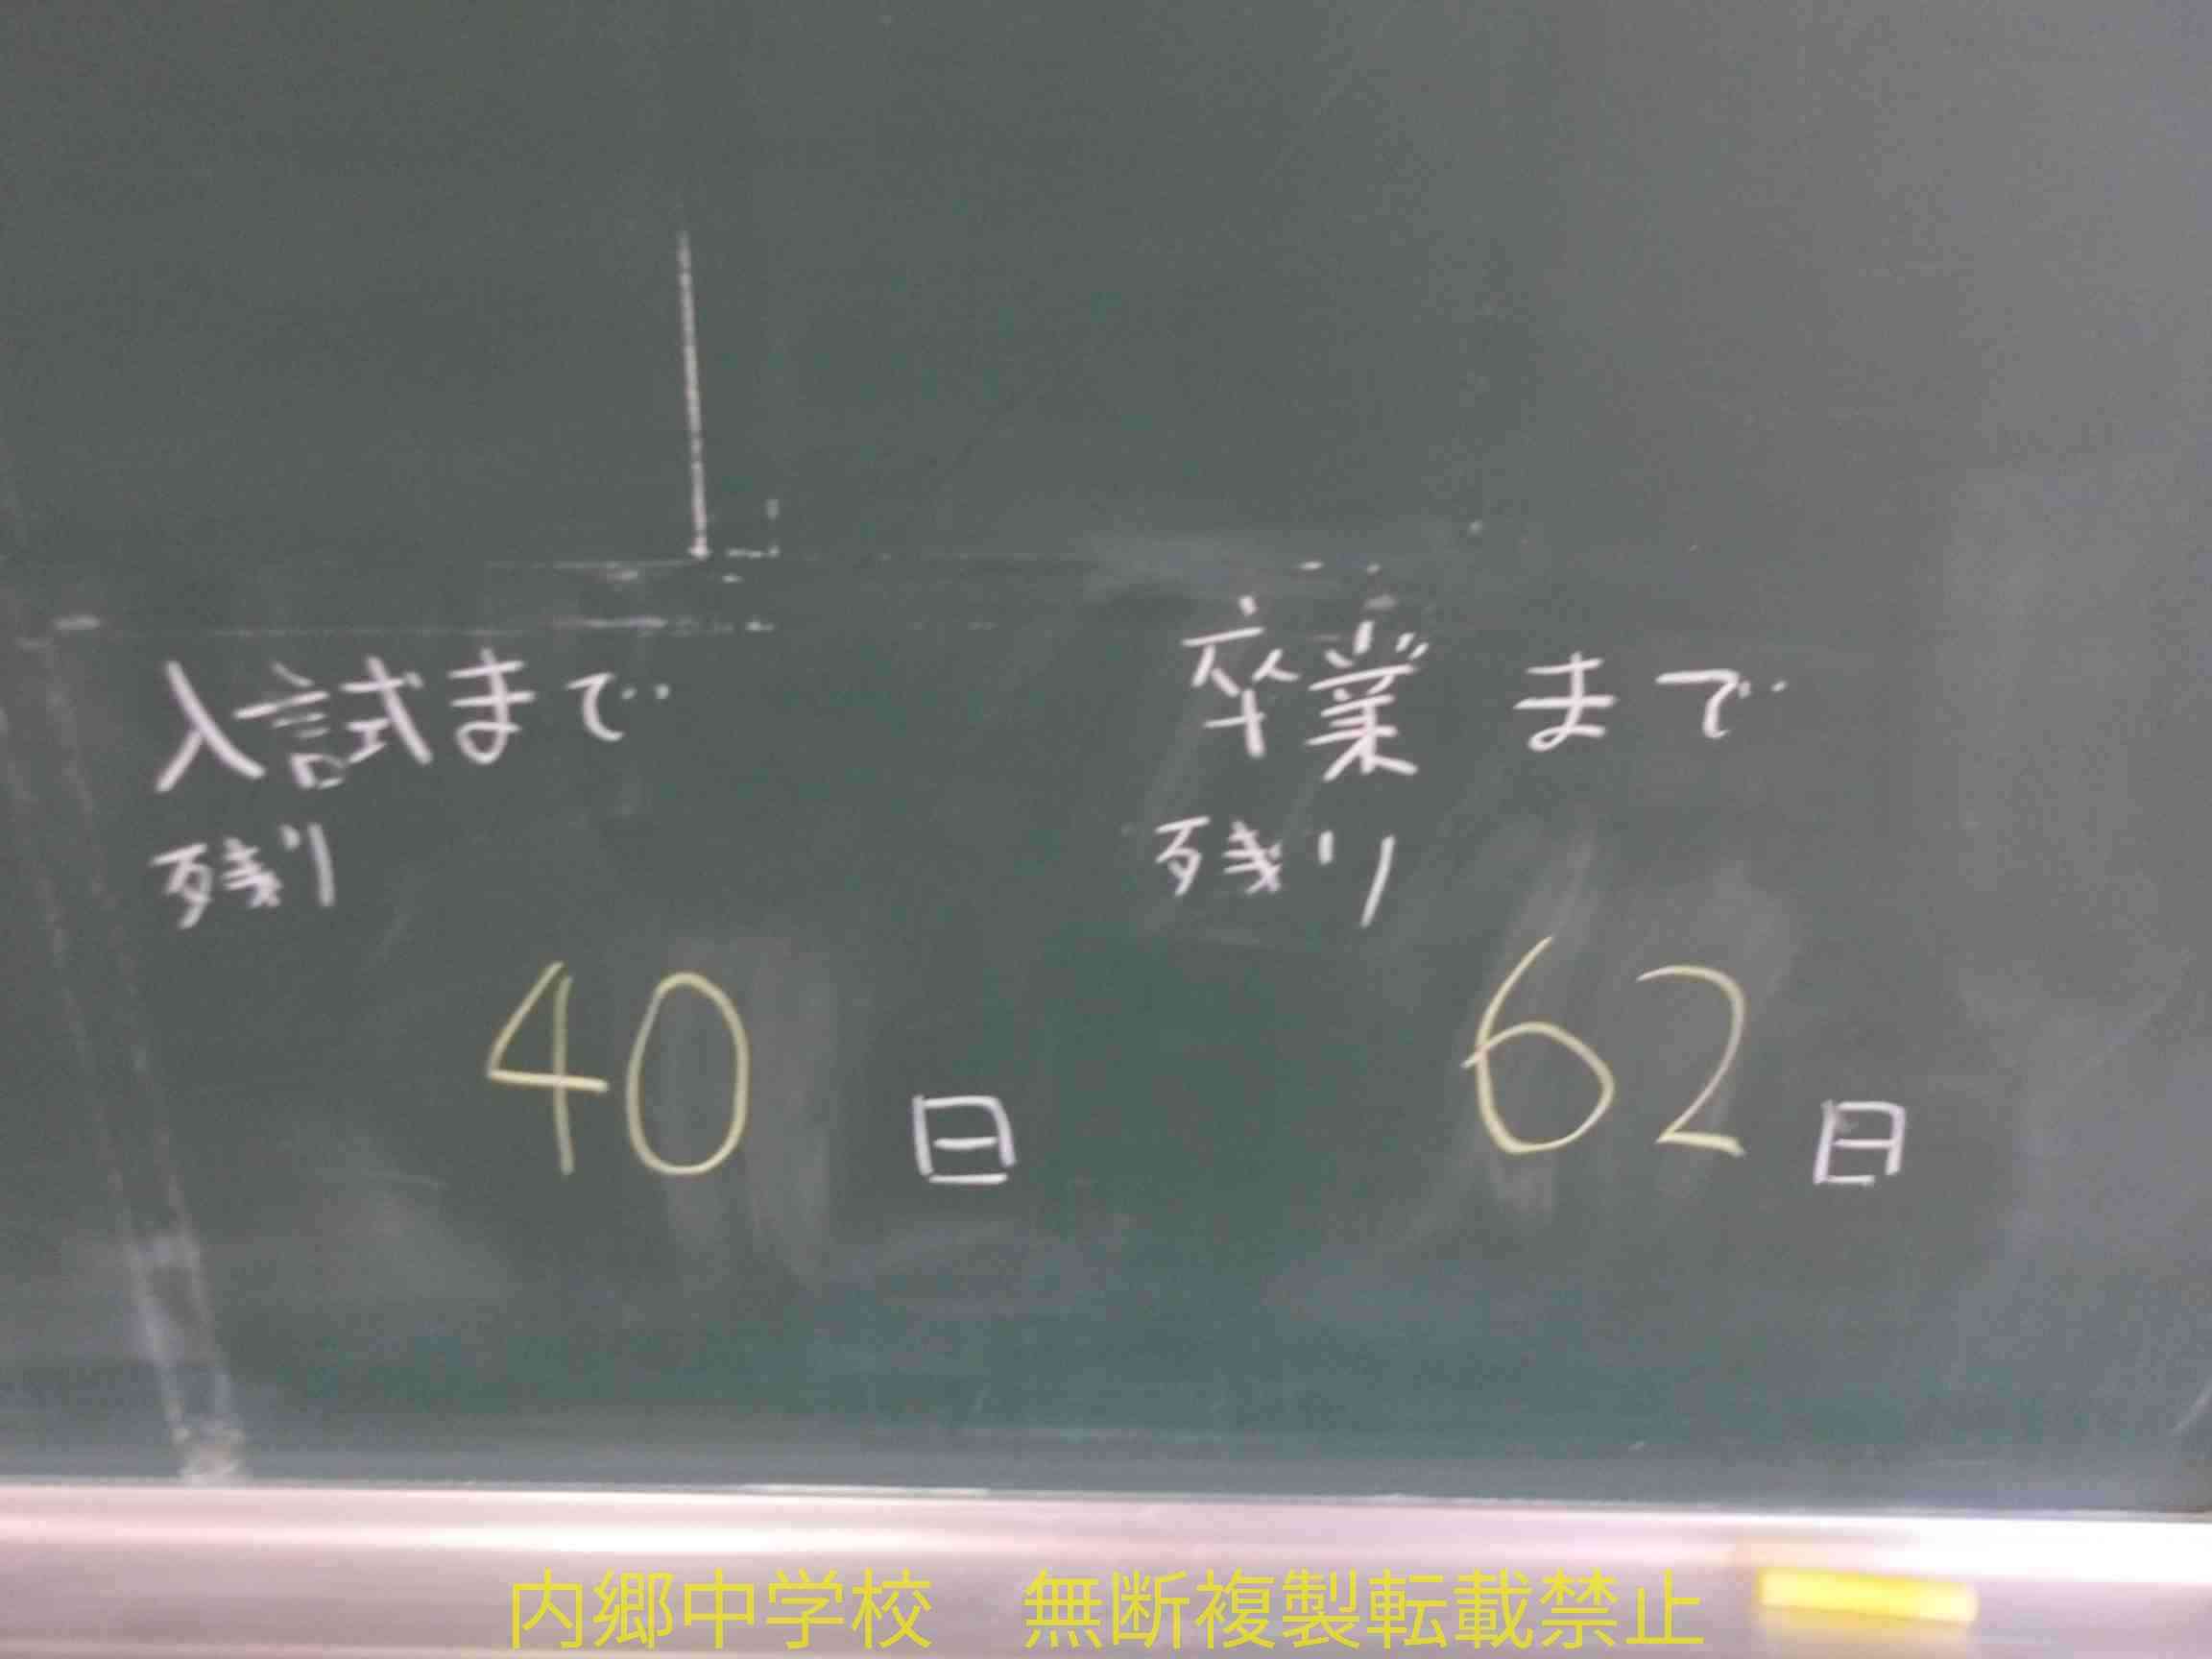 入試まで
残り
40日
卒業まで
残り
62日
内郷中学校　無断複製転載禁止